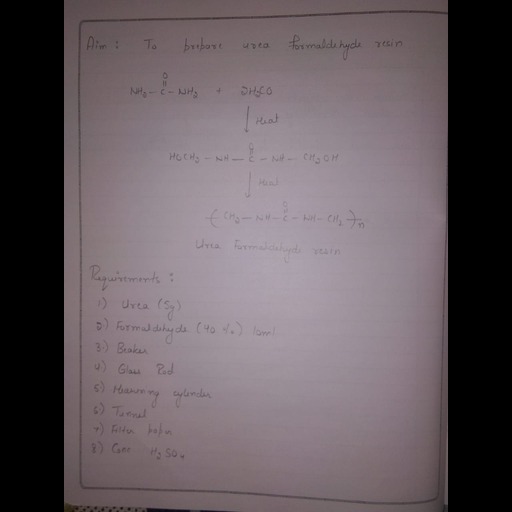 Aim : To prepare urea formaldehyde resin
O
NH2 - C - NH2 + 2H2CO
Heat
O
HOCH2 - NH - C - NH - CH2OH
Heat
O
( CH2 - NH - C - NH - CH2 )n
Urea Formaldehyde resin
Requirements :
1) Urea (5g)
2) Formaldehyde (40 %)
3) Beaker
4) Glass Rod
5) Measuring cylinder
6) Funnel
7) Filter paper
8) Conc H2SO4